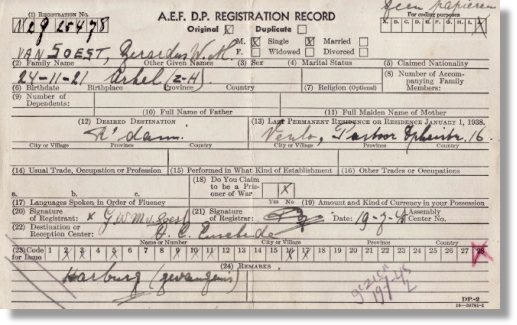 geen papieren
(1) REGISTRATION NO. A.E.F. D.P. REGISTRATION RECORD For coding purposes
Original Duplicate A. B. C. D. E. F. G. H. I. J.
M. X Single X Married
VAN SOEST, Gerardus W. M. F. Widowed Divorced
(2) Family Name Other Given Names (3) Sex (4) Marital Status (5) Claimed Nationality
24-11-21 (Z-H) (8) Number of Accompanying Family Members:
(6) Birthdate Birthplace (Province) Country (7) Religion (Optional)
(9) Number of Dependents:
(10) Full Name of Father (11) Full Maiden Name of Mother
(12) DESIRED DESTINATION (13) LAST PERMANENT RESIDENCE OR RESIDENCE JANUARY 1, 1938.
R'dam. Venlo, Pastoor 16.
City or Village Province Country City or Village Province Country
(14) Usual Trade, Occupation or Profession (15) Performed in What Kind of Establishment (16) Other Trades or Occupations
(18) Do You Claim to be a Prisoner of War X
a. b. c. Yes No
(17) Languages Spoken in Order of Fluency (19) Amount and Kind of Currency in your Possession
(20) Signature of Registrant: x (21) Signature of Registrar: Date: Assembly Center No.
(22) Destination or Reception Center: Enschede
Name or Number City or Village Province Country
(23) Code for Issue 1 2 3 4 5 6 7 8 9 10 11 12 13 14 15 16 17 18 19 20 21 22 23 24 25 26 27 28
(24) REMARKS
Harburg (gevangenis)
gezien
19-7-45
DP-2